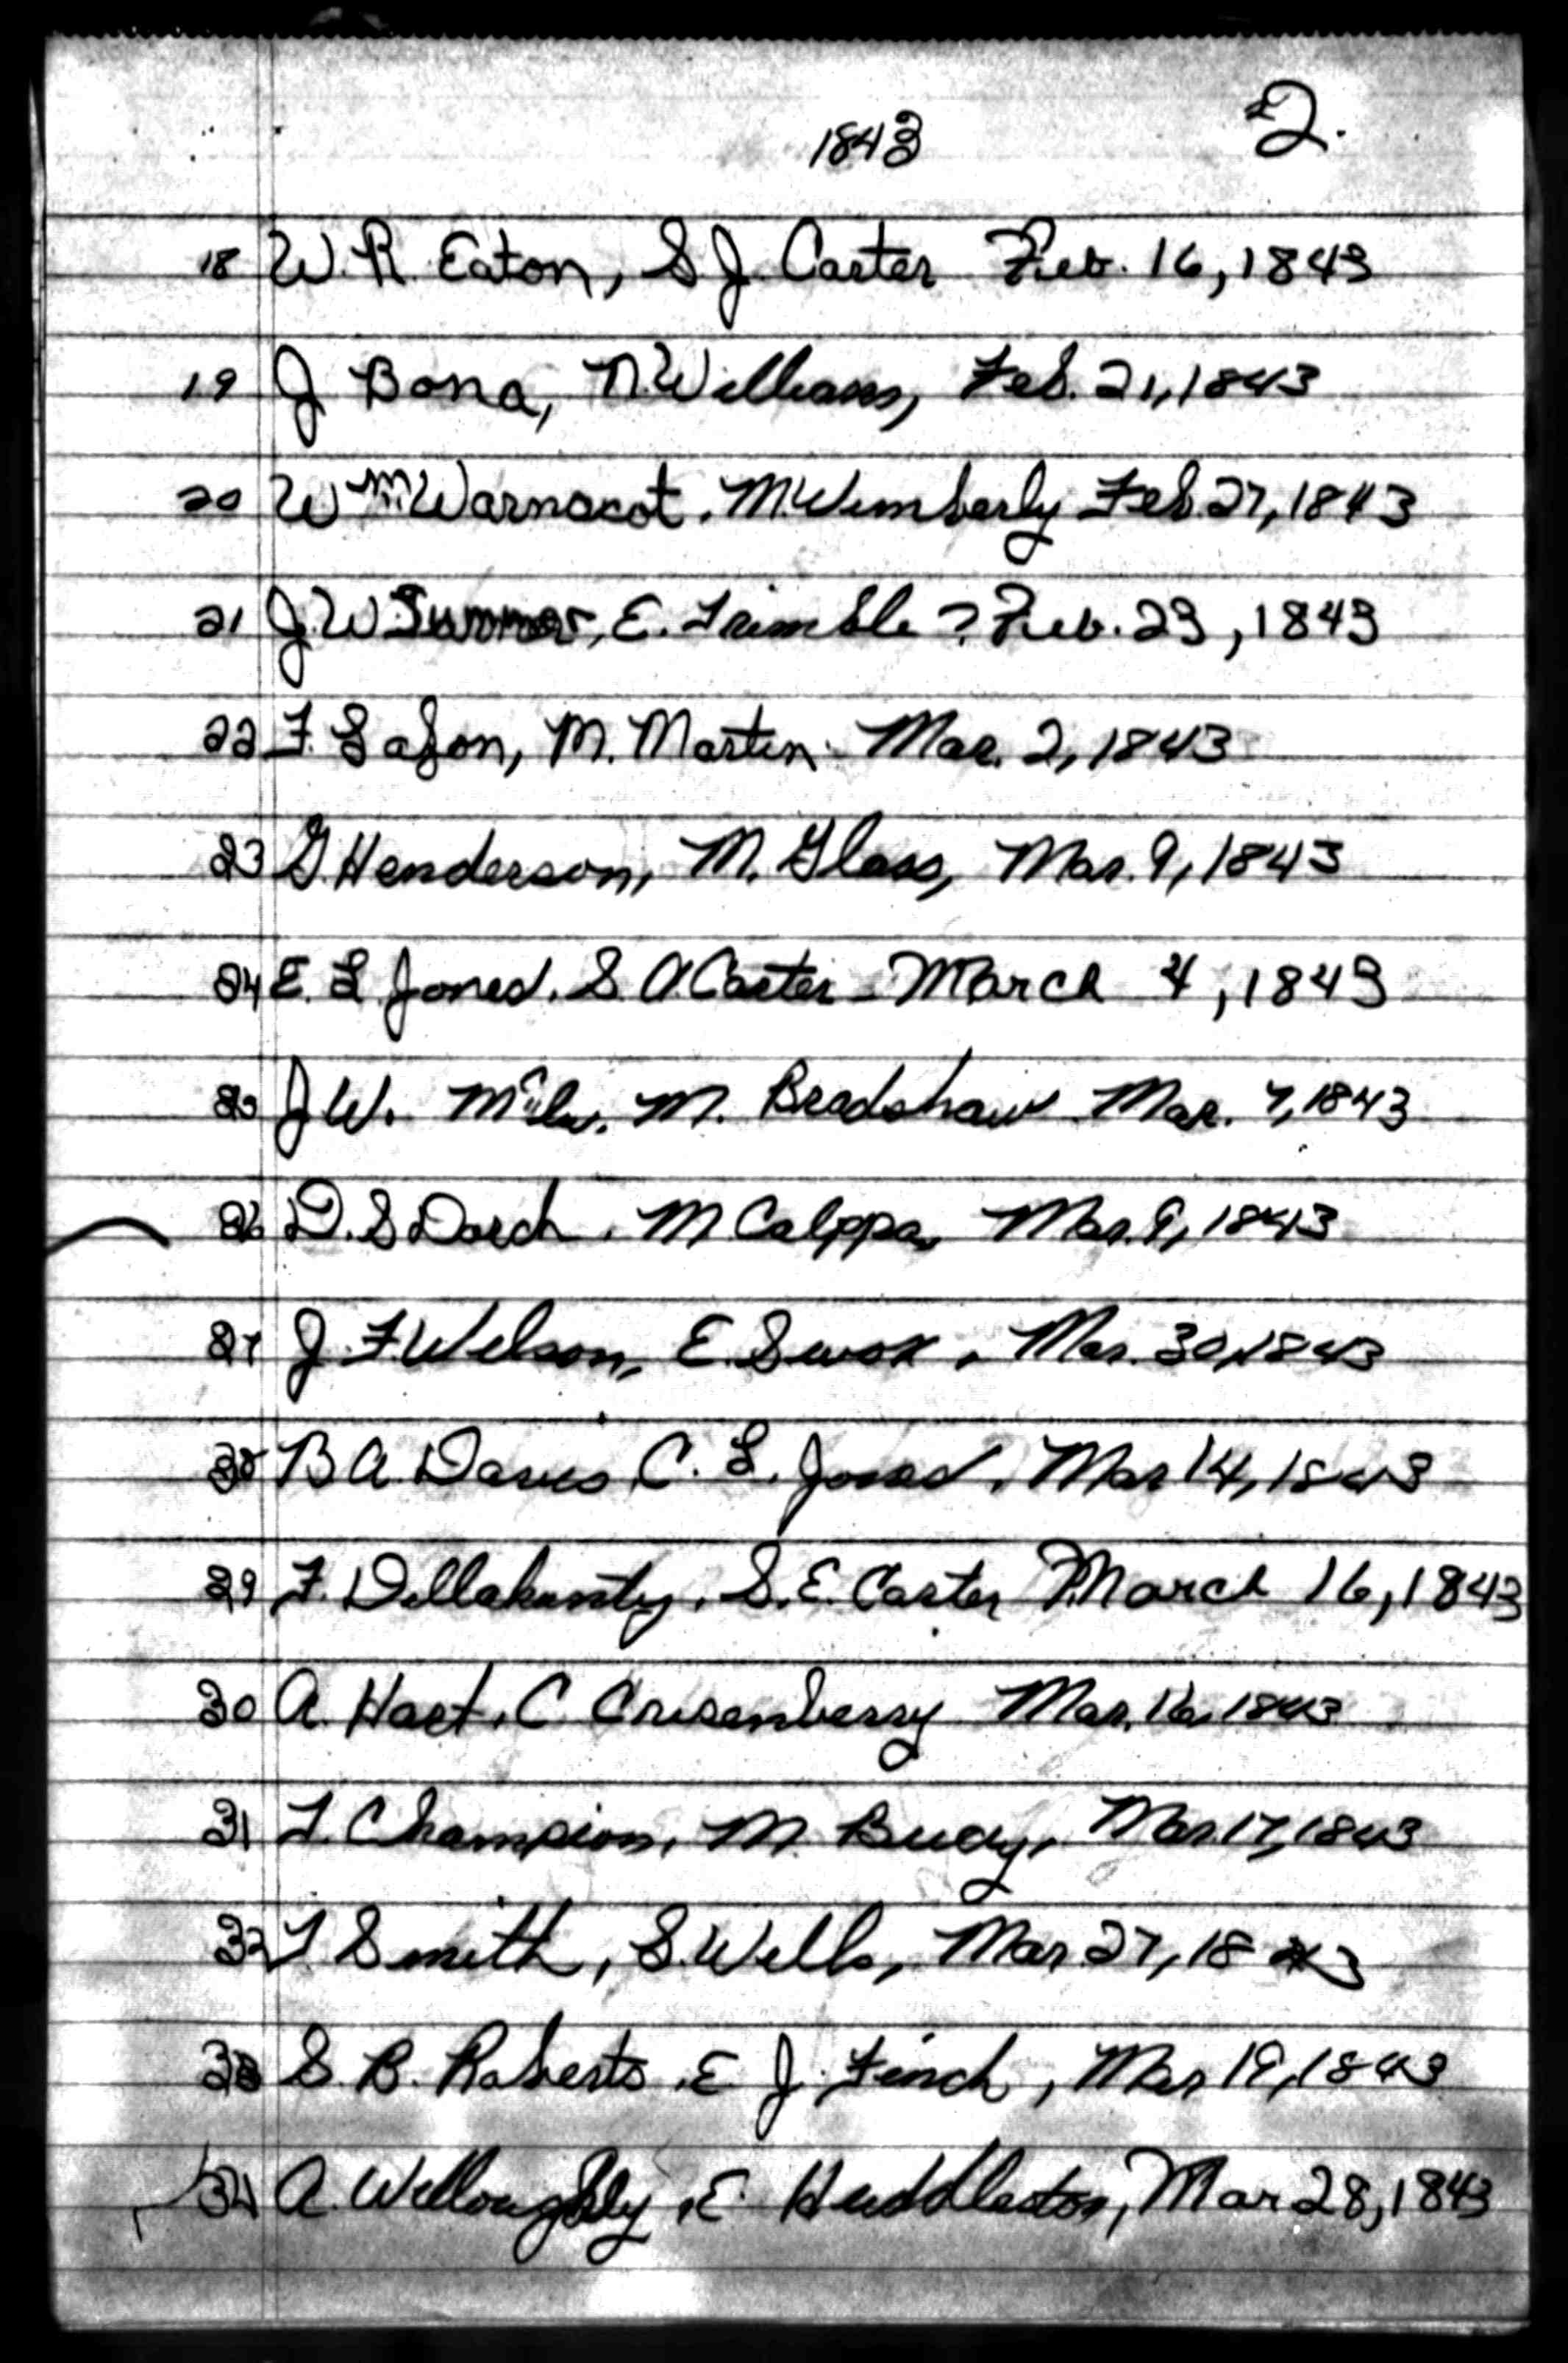 1843 2.
18 W. R. Eaton, S. J. Carter Feb. 16, 1843
19 J Bona, N. Williams, Feb. 21, 1843
20 Wm. Warnacot, M. Wimberly Feb. 27, 1843
21 J. W. Turner, E. Trimble ? Feb. 23, 1843
22 F. M. Martin Mar. 2, 1843
23 G. Henderson, M. Glass, Mar. 9, 1843
24 E. L Jones, S. A. Carter - March 4, 1843
25 J W. M. Bradshaw Mar. 7, 1843
26 D. S Dorch, M Mar. 9, 1843
27 J. F. Wilson, E. Mar. 30, 1843
28 B A Davis C. L. Jones, Mar 14, 1843
29 F. Dillahunty, S. E. Carter March 16, 1843
30 A. Hart, C Crisenberry Mar. 16, 1843
31 T. Champion, M. Mar. 17, 1843
32 T Smith, S. Wells, Mar 27, 1843
33 S. B. Roberts, E J. Finch, Mar 19, 1843
34 A. Willoughby, E. Huddleston, Mar 28, 1843